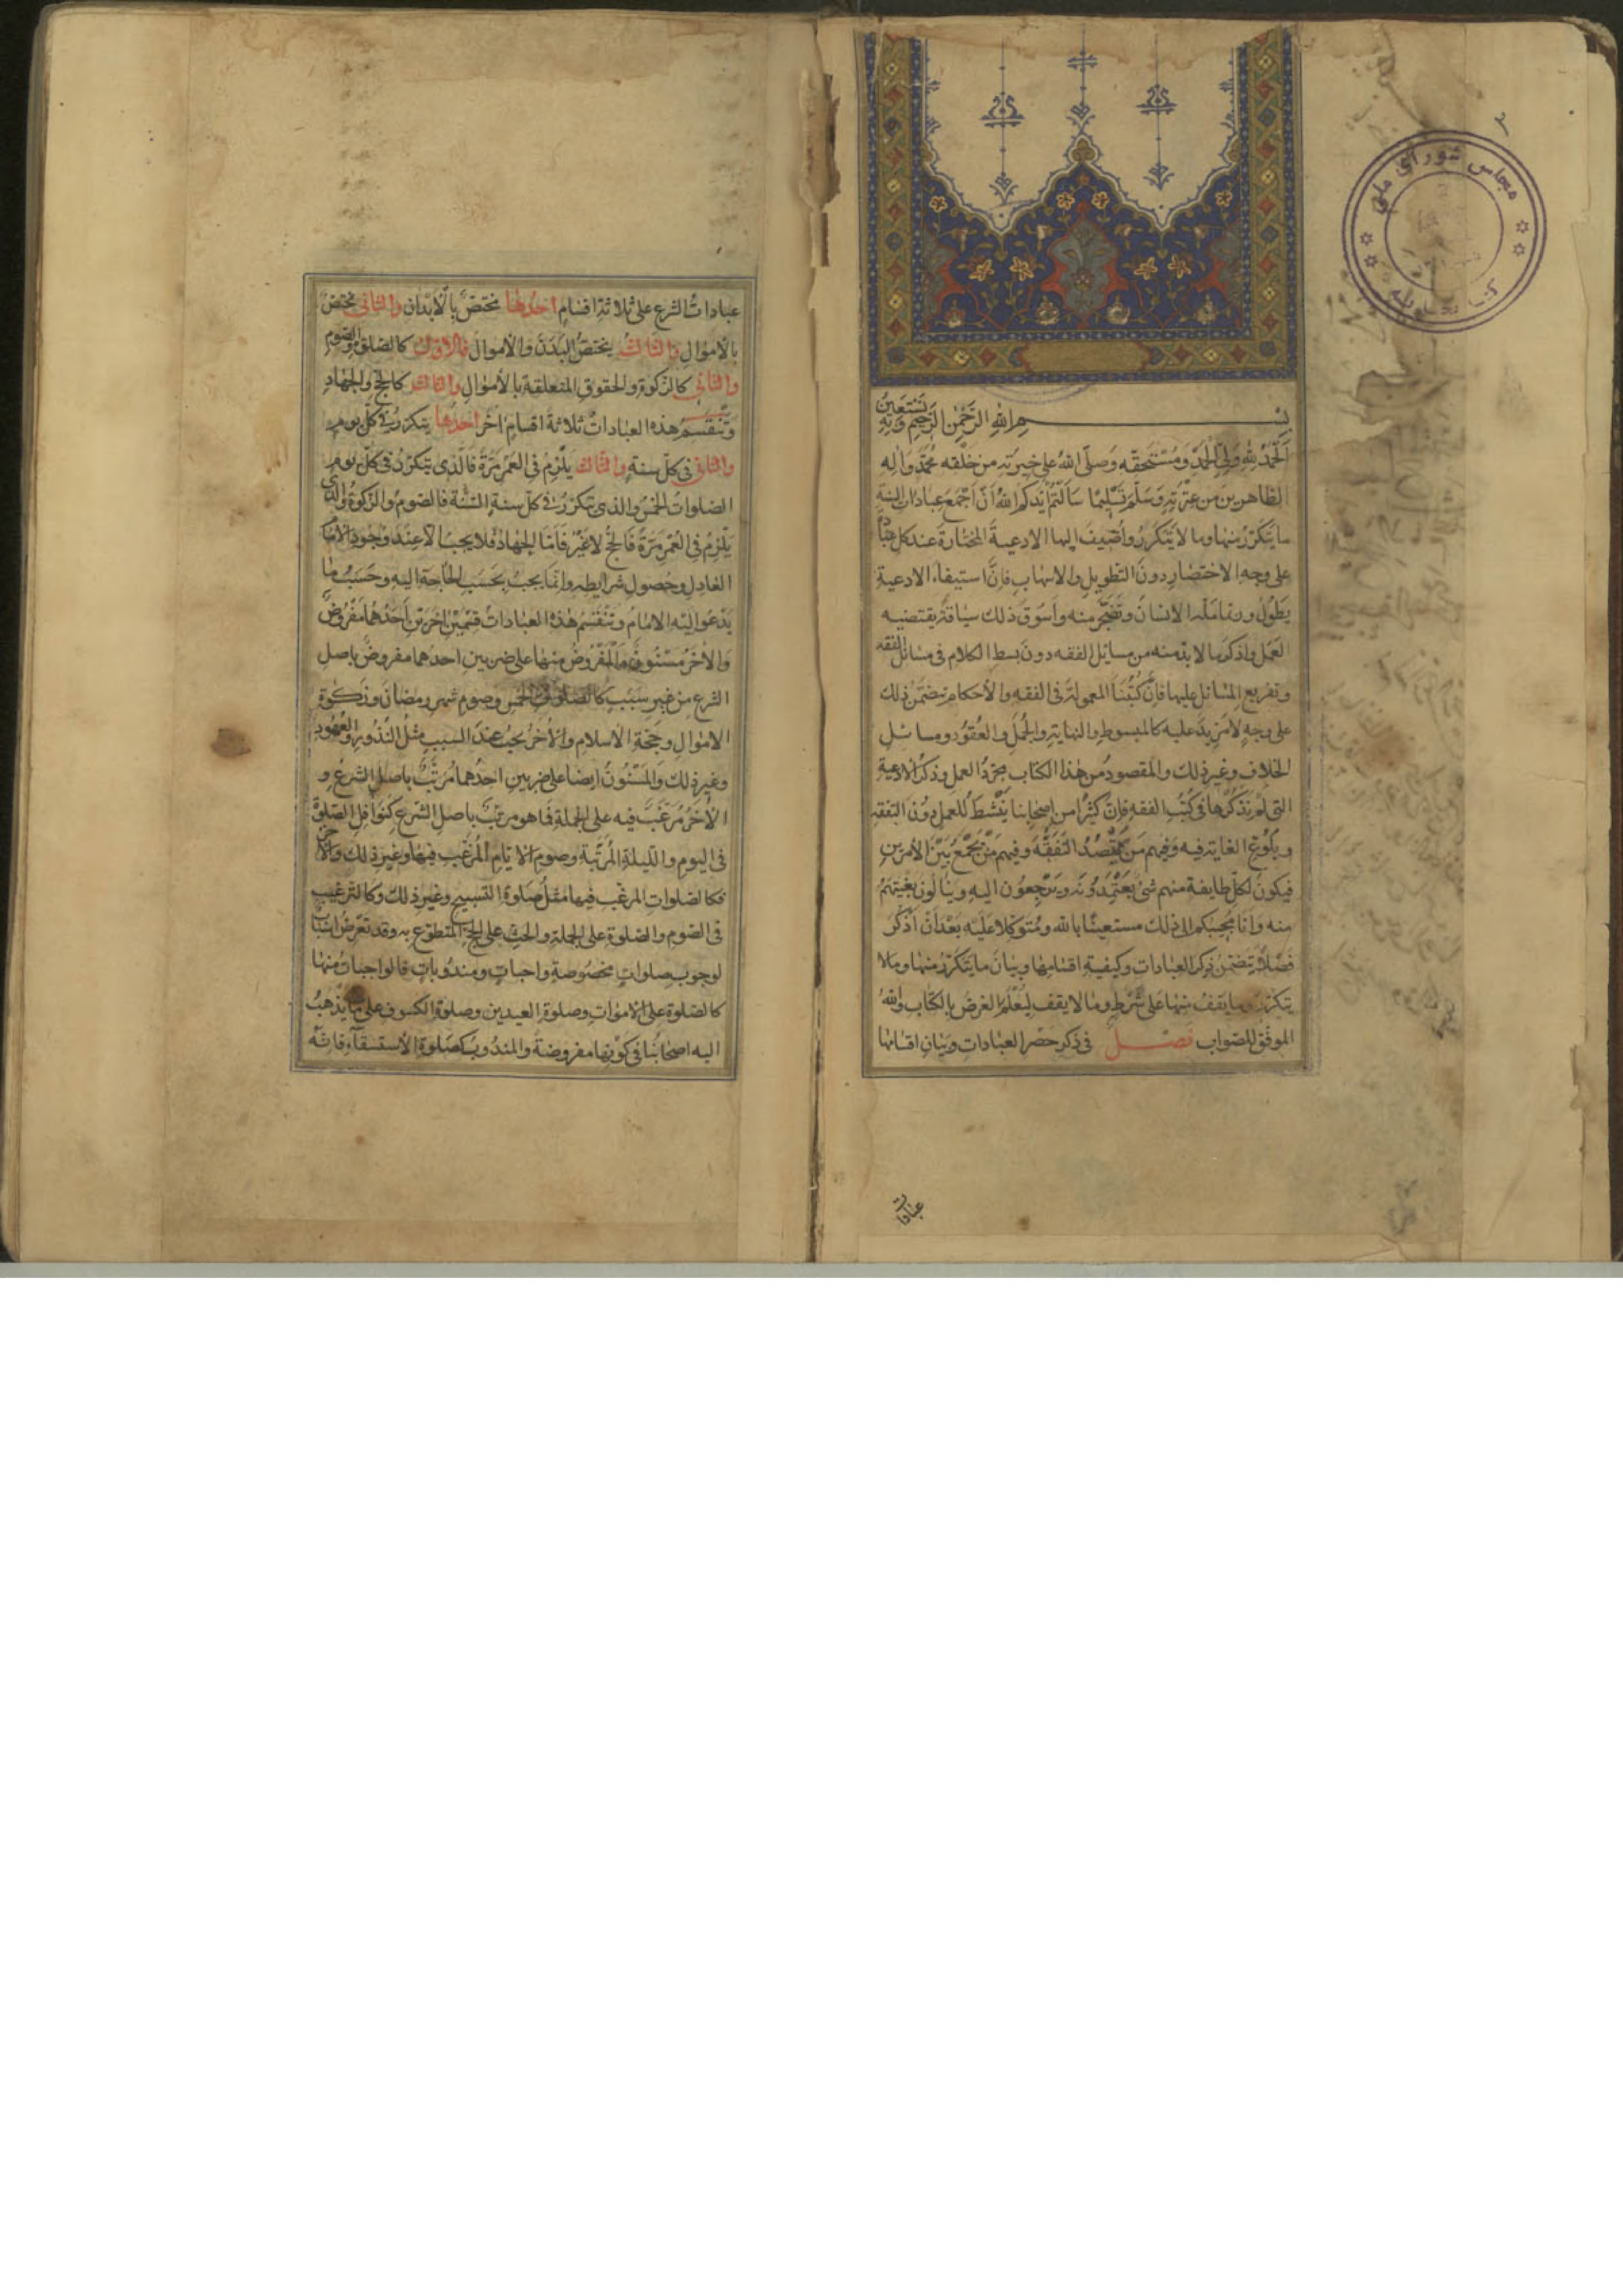 بسم الله الرحمن الرحيم وبه نستعين
اَلْحَمْدُ للهِ وَلِيِّ الْحَمْدِ وَمُسْتَحِقِّه وَصلّى اللهُ على خِيرَتِه من خَلْقه مُحَمَّدٍ وَآلِه
الطّاهرين مِن عِتْرَتِهِ وَسَلَّمَ تَسْلِيمًا سَاَلْتُمْ اَيَّدكم اللهُ اَنْ اَجْمَعَ عِبَادَات السَّنة
ما يَتَكَرَّرُ منها وما لا يَتَكَرَّرُ واُضيفَ اليها الادعيةَ المختارةَ عند كل عبادة
على وجهِ الاختصارِ دونَ التطويلِ والاسهابِ فاِنَّ استيفاء الادعيةِ
يَطُولُ وربّما مَلَّه الانسانُ وتَضَجَّرَ منه واَسوقَ ذلك سياقةً يقتضيه
العَمَل واذكرَ ما لا بدّ منه من مسائل الفقه دونَ بسط الكلام فى مسائل الفقه
وتفريع المسائل عليها فاِنَّ كُتُبَنا المعمولةَ فى الفقه والاحكام يتضمّن ذلك
على وجهٍ لا مَزِيدَ عليه كالمبسوطِ والنهايةِ والجُمَلِ والعُقُودِ ومسائلِ
الخلافِ وغيرِ ذلك والمقصودُ من هذا الكتاب مجرّدُ العملِ وذكرُ الادعيةِ
التى لم نَذكُرها فى كُتُبِ الفقه فاِنّ كثيرًا من اصحابنا يَنْشطُ للعملِ دونَ التفقه
وبلوغِ الغايةِ فيه وَفيهم مَنْ يَقْصُدُ التَّفَقُّهَ وفيهم مَنْ يَجْمَعُ بَيْنَ الاَمرَينِ
فيكونَ لكلّ طايفة منهم شئ يَعْتَمِدُونَه ويَرْجِعُون اليهِ ويَنالُونَ بُغْيَتَهُمْ
منه وَانا مُجيبُكم الى ذلك مستعينًا بالله ومُتَوَكِّلا عَلَيْه بَعْدَ اَنْ اَذكُرَ
فَصْلاً يَتضمّن ذكرَ العبادات وكيفيةِ اقسامِها وبيانَ ما يَتكرّرُ منها وما لا
يتكرّر وما يَقفُ منها عَلى شَرْطٍ وما لا يقف ليُعْلَمَ الغرضُ بالكتاب واللهُ
الموفّق للصّواب فصــل فى ذكر حَصْر العبادات وبيَان اقسامها
عبادات
مجلس شوراى ملى
عباداتُ الشرع على ثلاثة اقسامٍ احدُها تختصّ بالاَبدان والثانى تختصّ
بالاموالِ والثالثُ يختصّ البَدَنَ والاموالَ فالاوّل كالصلوة والصوم
والثانى كالزكوة والحقوقِ المتعلقة بالاموالِ والثالث كالحجّ والجهادِ
وتَنْقَسِمُ هذه العباداتُ ثلاثةَ اقسامٍ اُخَر احدُها يتكرّرُ فى كلّ يومٍ
والثانى فى كلّ سنةٍ والثالث يَلْزَمُ فى العُمْرِ مَرَّةً فَالّذى يَتكرّرُ فى كلّ يومٍ
الصلواتُ الخمسُ والذى يتكرّرُ فى كلّ سنةٍ السَّنَة فالصومُ والزكوةُ والذى
يَلْزَمُ فى العُمْرِ مَرَّةً فَالحجُّ لا غيرُ فَاَمّا الجهادُ فلا يجبُ الاّ عِنْدَ وُجُودِ الاِمام
العادِلِ وحُصُولِ شرايطِه وانّما يجبُ بحَسَبِ الحاجةِ اليهِ وحَسَبِ ما
يَدْعُو اليْهِ الامامُ وتَنْقَسِمُ هذه العباداتُ قِسْمَيْنِ اخَرَيْنِ اَحَدُهما مَفْرُوضٌ
وَالآخَرُ مَسْنُونٌ والمَفْرُوضُ منها على ضربينِ احدُهما مفروضٌ باصلِ
الشرعِ من غيرِ سَبَبٍ كالصلوات الخمسِ وصومِ شهرِ رمضانَ وزكوة
الاموالِ وحجّةِ الاسلامِ والآخرُ يجبُ عندَ السببِ مثلُ النُّذورِ والعُهُودِ
وغيرِ ذلك وَالمَسْنُونُ ايضا على ضربين احدُهما مُرتَّبٌ باصلِ الشّرعِ و
الآخَرُ مُرغَّبٌ فيه على الجملةِ فما هو مرتّبٌ باصل الشرع كنَوافِل الصّلوة
فى اليوم والليلةِ المُرَتَّبة وصومِ الايّامِ المُرَغّبِ فيها وغيرِ ذلك والآخر
فكالصلواتِ المرغّب فيها مثلُ صَلوةِ التسبيح وغيرِ ذلك وكالترغيبِ
فى الصوم والصلوة على الجملةِ والحثِّ على الحجّ المتطوّع به وقد تَعرِضُ اسبابٌ
لوجوبِ صلواتٍ مخصُوصةٍ واجباتٍ ومندوباتٍ فالواجباتُ منها
كالصلوةِ على الامواتِ وصلوةِ العيدين وصلوةِ الكسوفِ على ما يَذهبُ
اليه اصحابُنا فى كونها مفروضة والمندُوبُ كصَلوةِ الاستسقاء فانّه